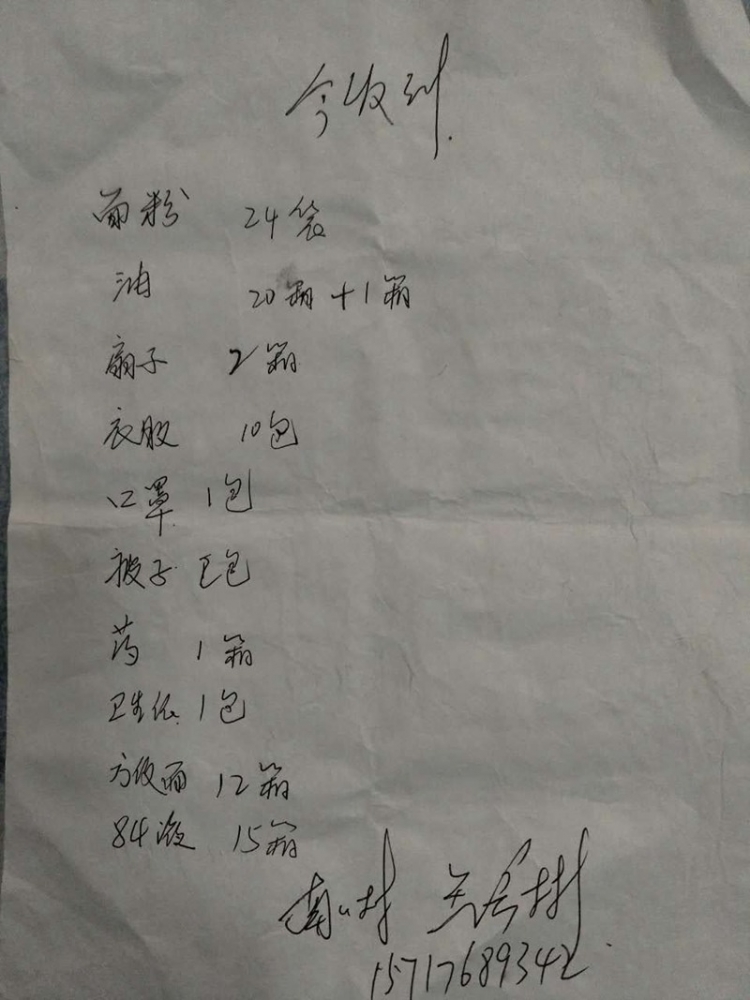 今收到
面粉 24袋
油 20箱+1箱
扇子 2箱
衣服 10包
口罩 1包
被子 包
药 1箱
卫生纸 1包
方便面 12箱
84液 15箱
南山村
15717689342